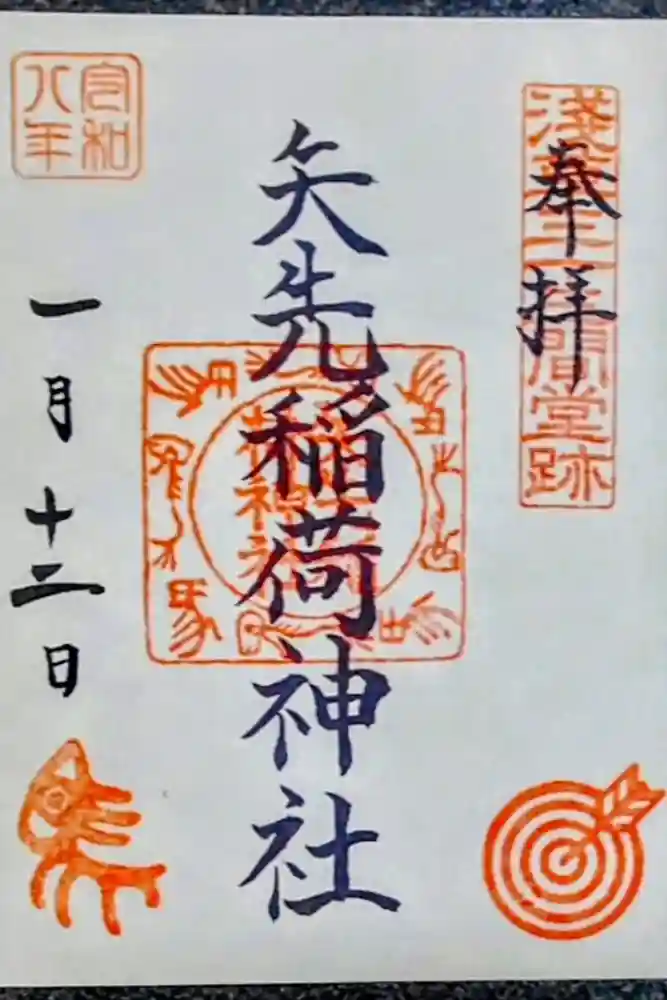 奉拝
浅草三十三間堂跡
矢先稲荷神社
稲荷神社
令和八年
一月十二日
馬